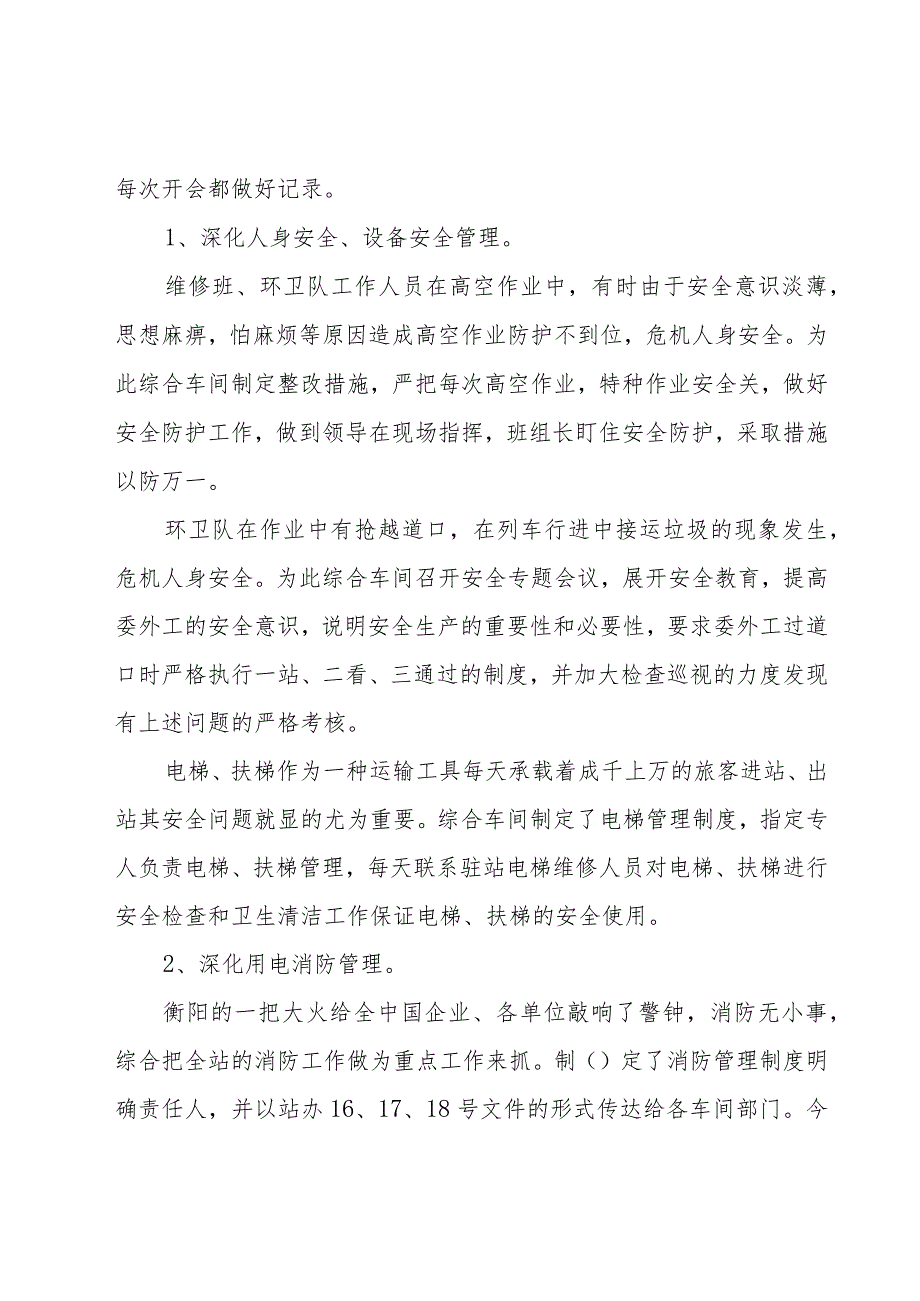 每次开会都做好记录。
1、深化人身安全、设备安全管理。
维修班、环卫队工作人员在高空作业中，有时由于安全意识淡薄，
思想麻痹，怕麻烦等原因造成高空作业防护不到位，危机人身安全。为
此综合车间制定整改措施，严把每次高空作业，特种作业安全关，做好
安全防护工作，做到领导在现场指挥，班组长盯住安全防护，采取措施
以防万一。
环卫队在作业中有抢越道口，在列车行进中接运垃圾的现象发生，
危机人身安全。为此综合车间召开安全专题会议，展开安全教育，提高
委外工的安全意识，说明安全生产的重要性和必要性，要求委外工过道
口时严格执行一站、二看、三通过的制度，并加大检查巡视的力度发现
有上述问题的严格考核。
电梯、扶梯作为一种运输工具每天承载着成千上万的旅客进站、出
站其安全问题就显的尤为重要。综合车间制定了电梯管理制度，指定专
人负责电梯、扶梯管理，每天联系驻站电梯维修人员对电梯、扶梯进行
安全检查和卫生清洁工作保证电梯、扶梯的安全使用。
2、深化用电消防管理。
衡阳的一把大火给全中国企业、各单位敲响了警钟，消防无小事，
综合把全站的消防工作做为重点工作来抓。制（）定了消防管理制度明
确责任人，并以站办 16、17、18 号文件的形式传达给各车间部门。今